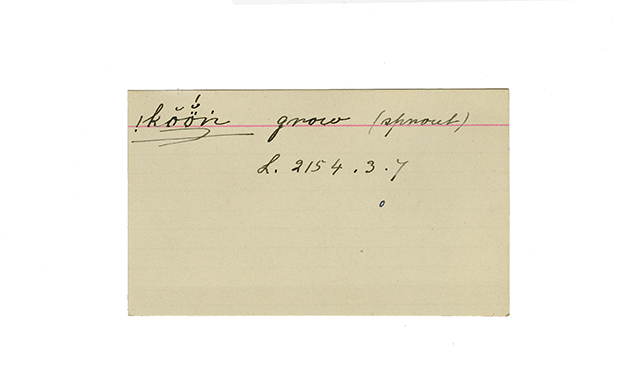 !kö̆ö̆ń grow (sprout)
L. 2154.3.7